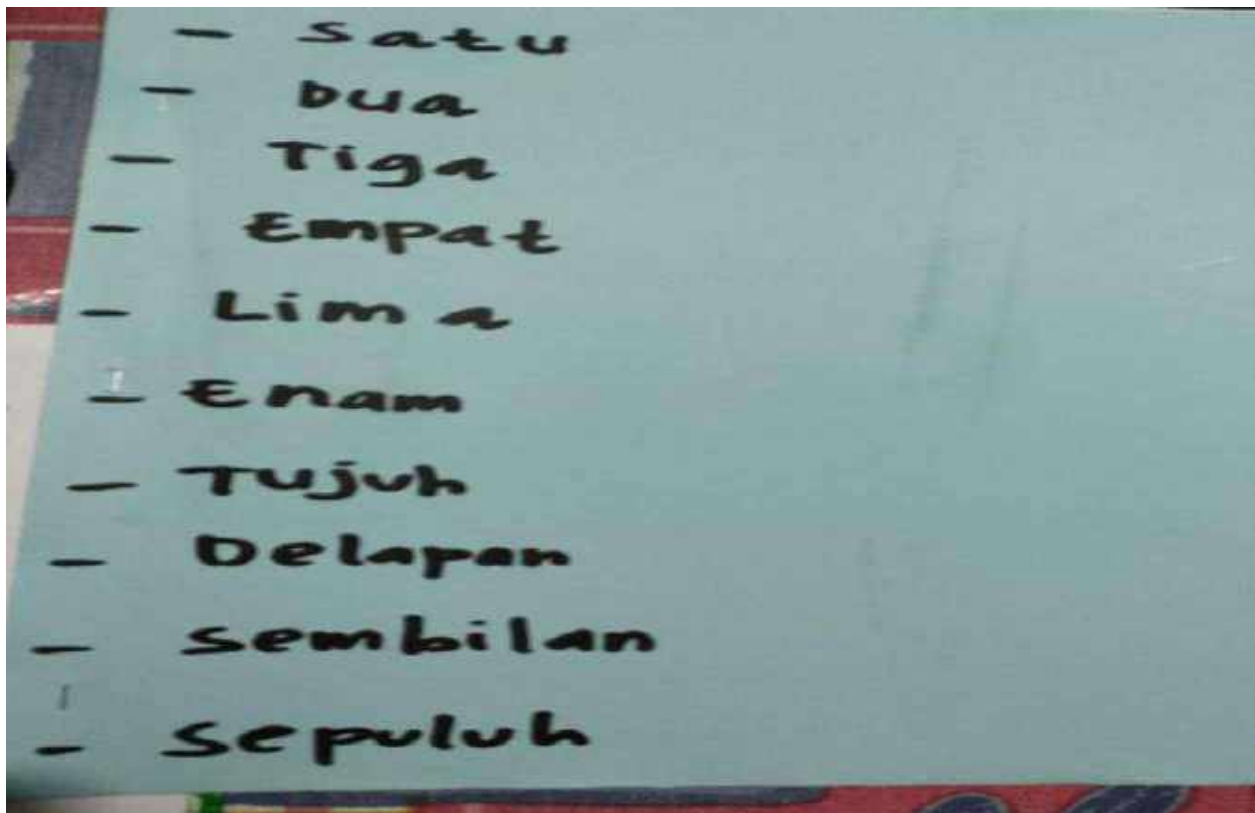 - Satu
- Dua
- Tiga
- Empat
- Lima
- Enam
- Tujuh
- Delapan
- Sembilan
- Sepuluh